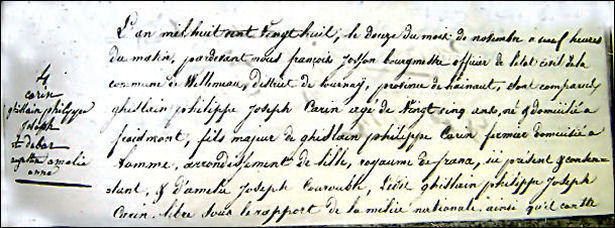 4
Carin
ghislain philippe
Joseph
et Debar
amelie
anne
L'an mil huit cent vingt huit, le douze du mois de novembre a neuf heures
du matin, pardevant nous françois bourgmestre officier de l'etat civil de la
commune de Willemeau, district de tournay, province de hainaut, sont comparus
ghislain philippe Joseph Carin agé de vingt cinq ans, né & domicilié a
froidmont, fils majeur de ghislain philippe Carin fermier domicilié a
arrondissement de lille, royaume de france, ici présent & consen-
tant, & d'amelie Joseph Courouble, ledit ghislain philippe Joseph
Carin, libre sous le rapport de la milice nationale, ainsi qu'il conste